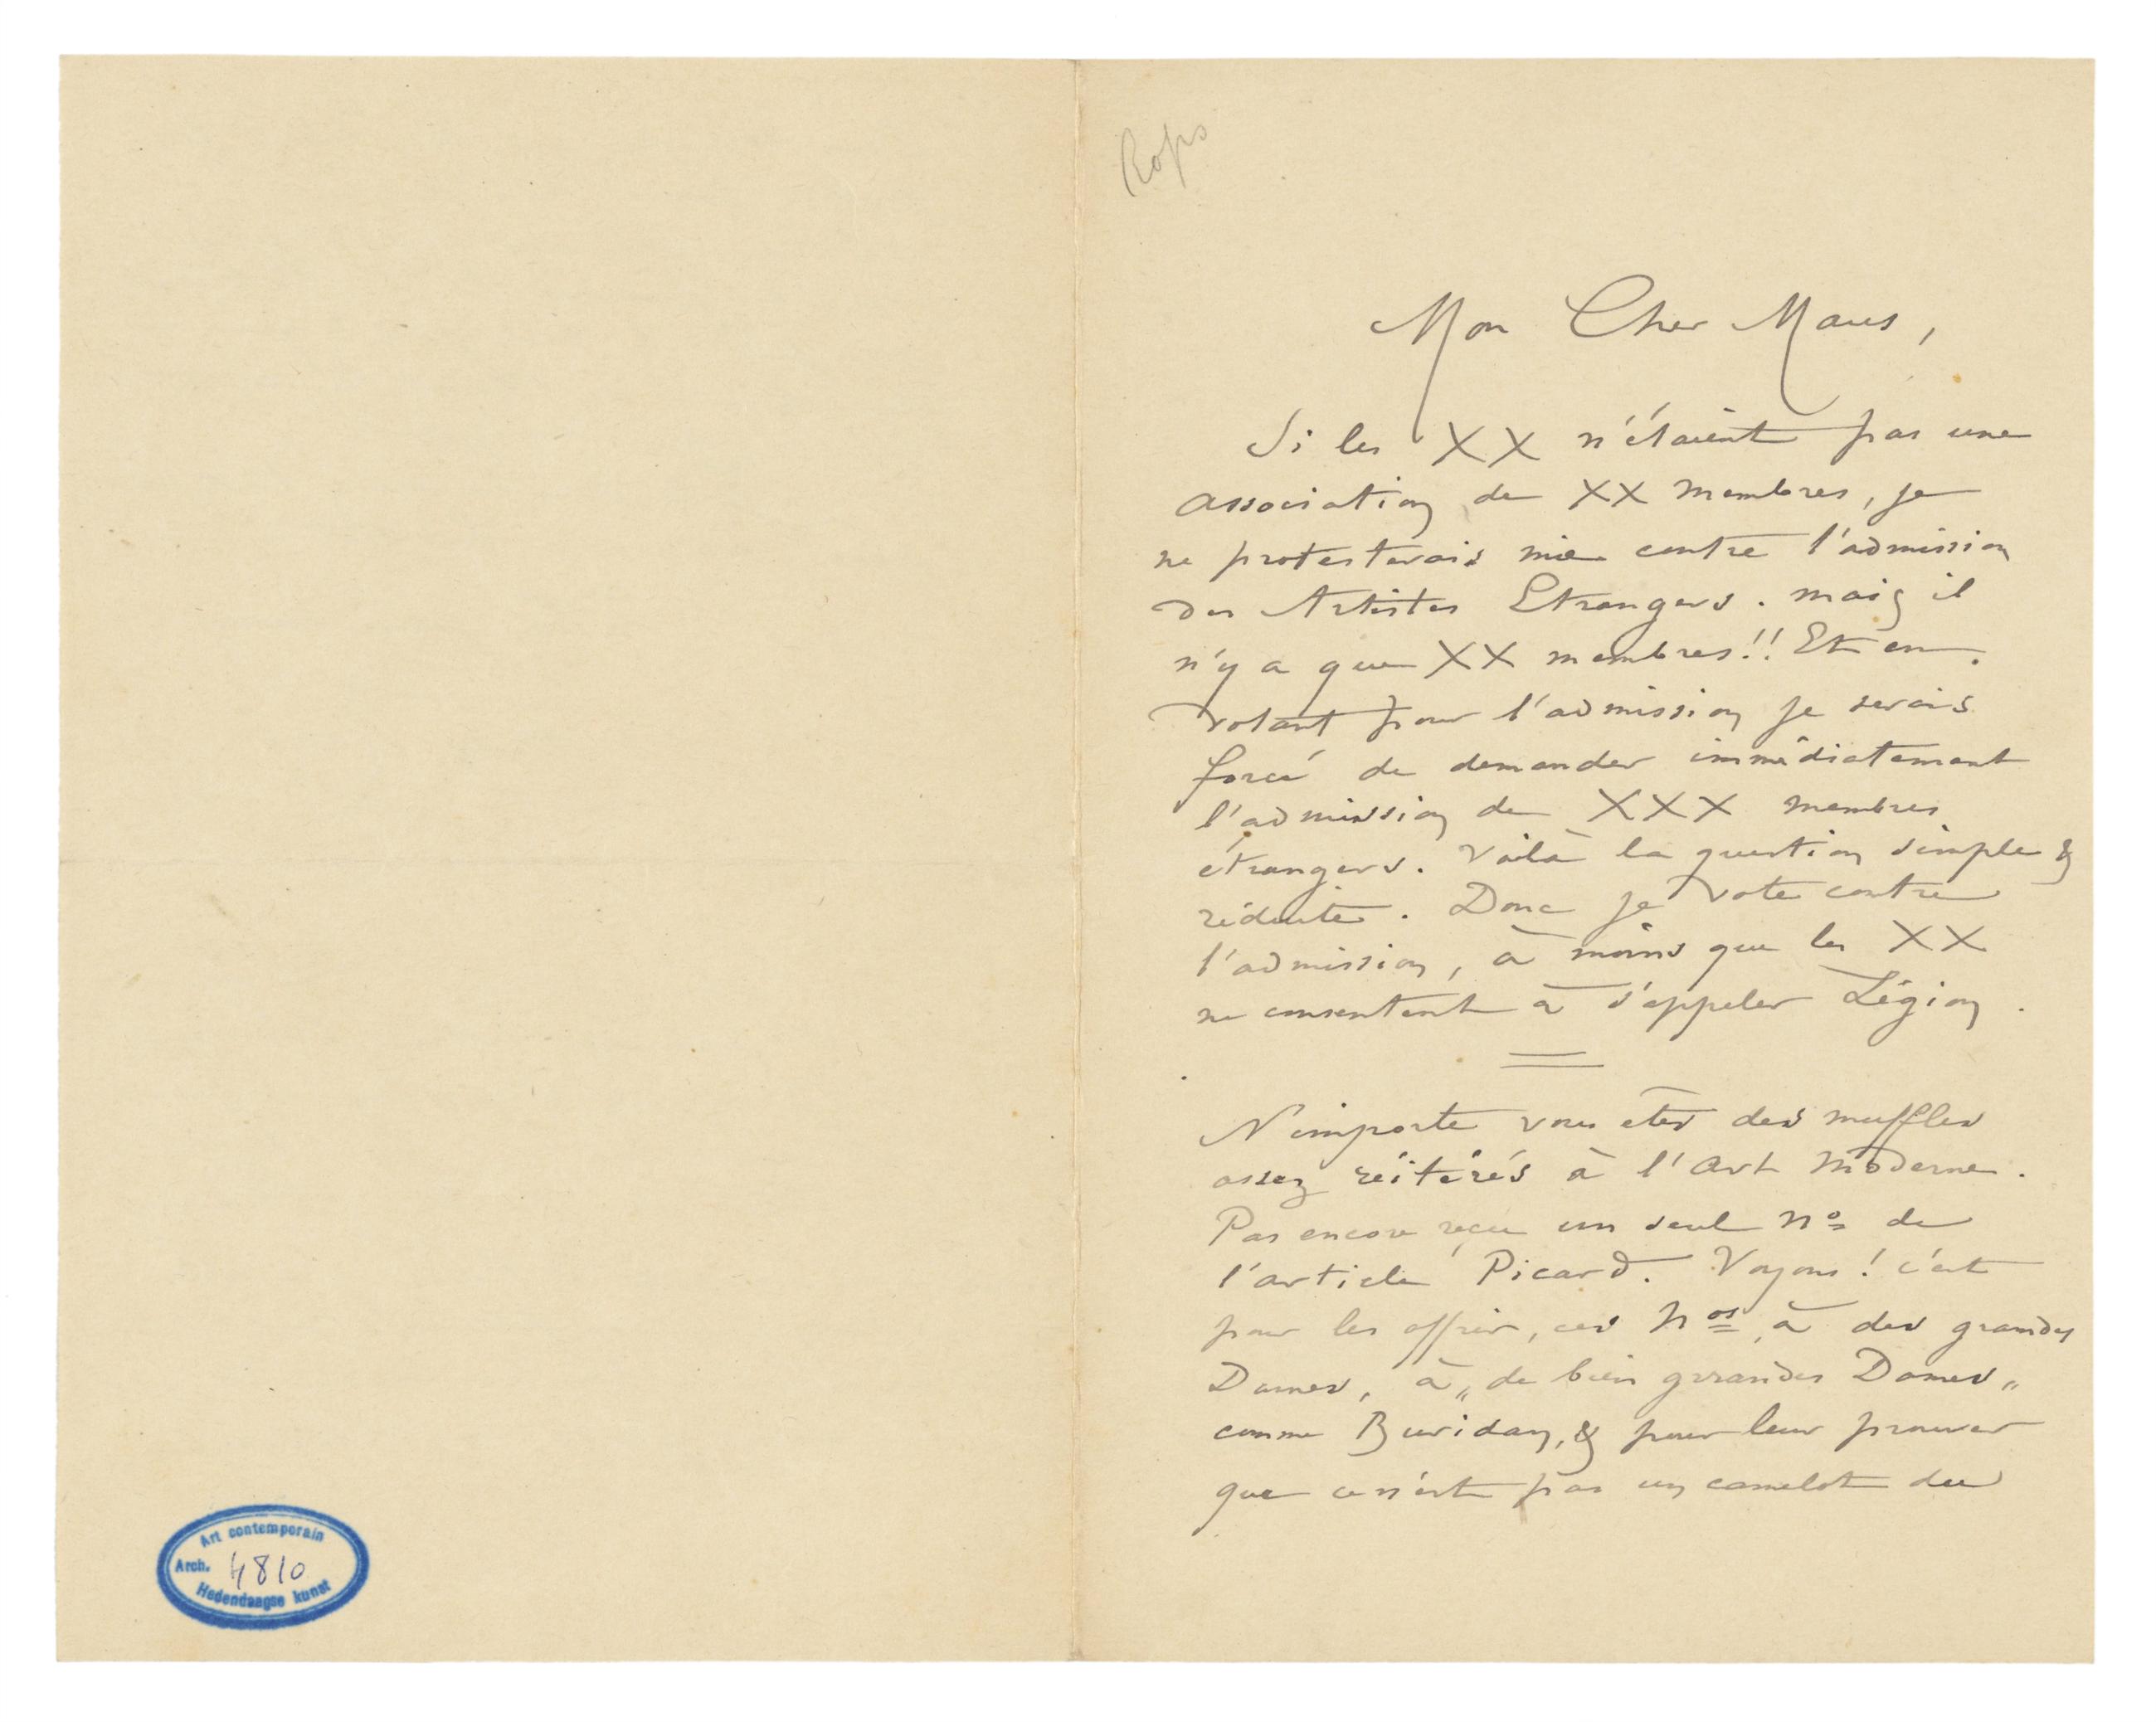 Rops
Mon Cher Maus,
Si les XX n'étaient pas une
association de XX membres, je
ne protesterais mie contre l'admission
des Artistes Etrangers. mais il
n'y a que XX membres!! Et en
votant pour l'admission je serais
forcé de demander immédiatement
l'admission de XXX membres
étrangers. Voilà la question simple &
réduite. Donc je vote contre
l'admission, à moins que les XX
ne consentent à s'appeler Légion.
N'importe vous êtes des muffles
assez réitérés à l'Art Moderne.
Pas encore reçu un seul nº de
l'article Picard. Voyons! c'est
pour les offrir, ces Nos, à des grandes
Dames, à „de bien grrandes Dames„
comme Buridan, & pour leur prouver
que ce n'est pas un camelot du
Art contemporain
Arch. 4810
Hedendaagse kunst